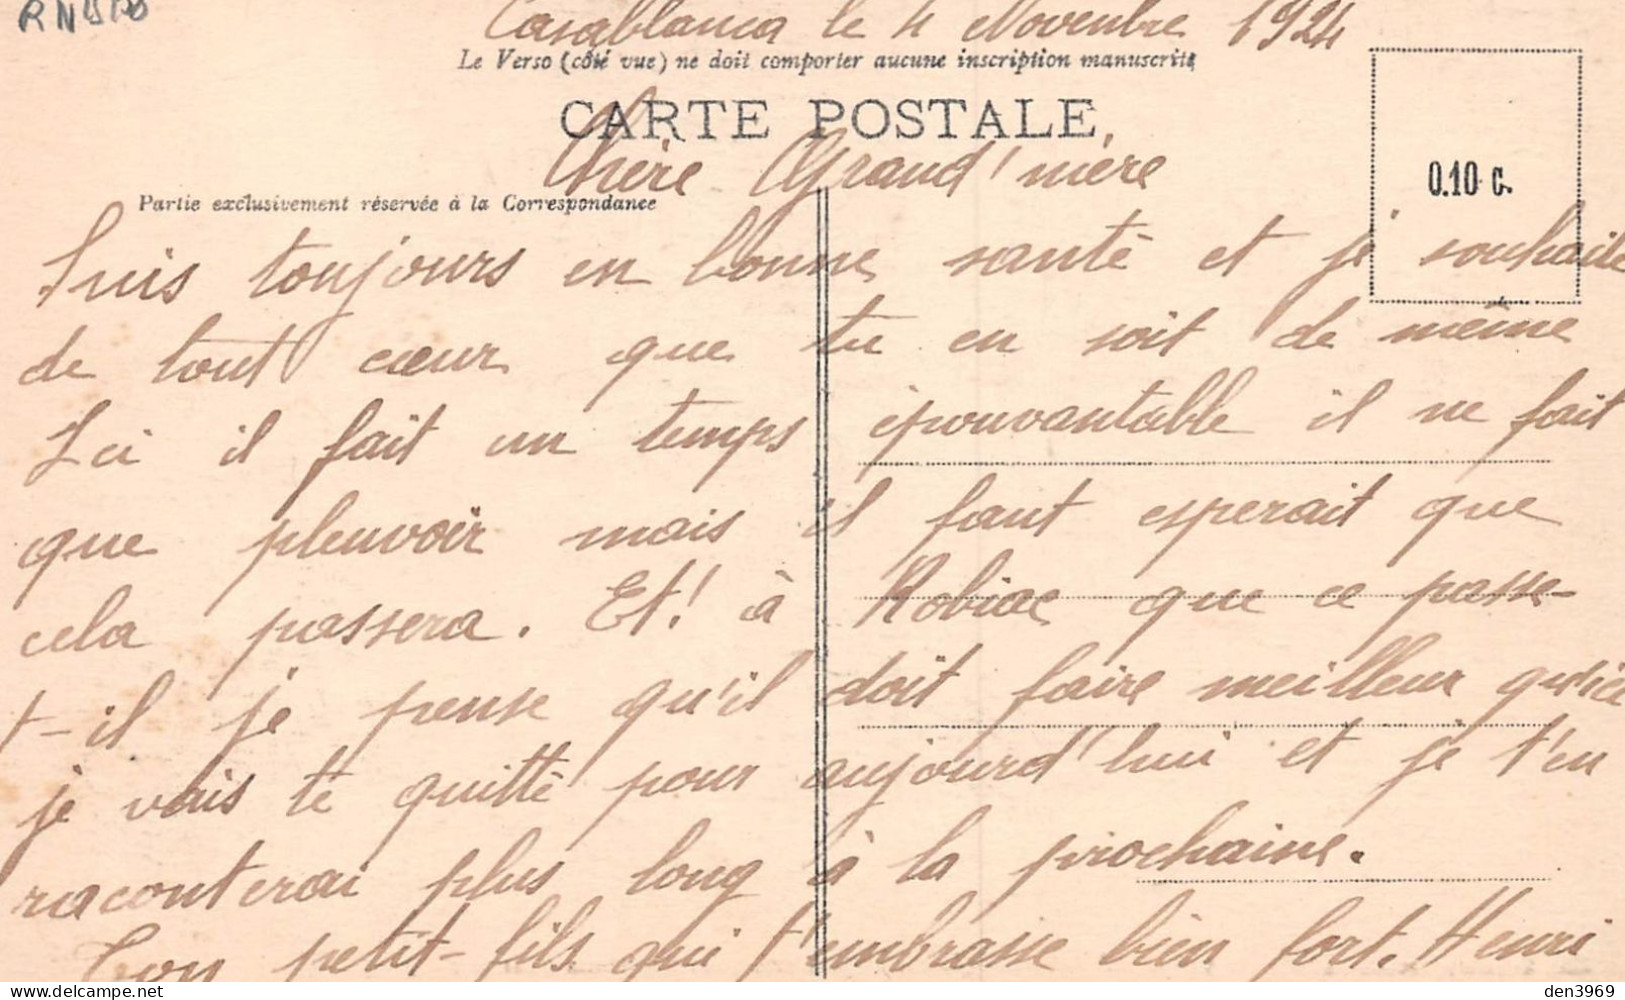 Casablanca le 4 Novembre 1924
Le Verso (côté vue) ne doit comporter aucune inscription manuscrite
CARTE POSTALE
Chère Grand'mère
0.10 c.
Partie exclusivement réservée à la Correspondance
Suis toujours en bonne santé et je souhaite
de tout cœur que tu en soit de même
Ici il fait un temps épouvantable il ne fait
que pleuvoir mais il faut esperait que
cela passera. Et! à Robiac que ce passe-
t-il je pense qu'il doit faire meilleur qu'ici
je vais te quitté pour aujourd'hui et je t'en
raconterai plus long à la prochaine.
Ton petit-fils qui t'embrasse bien fort. Henri
den3969